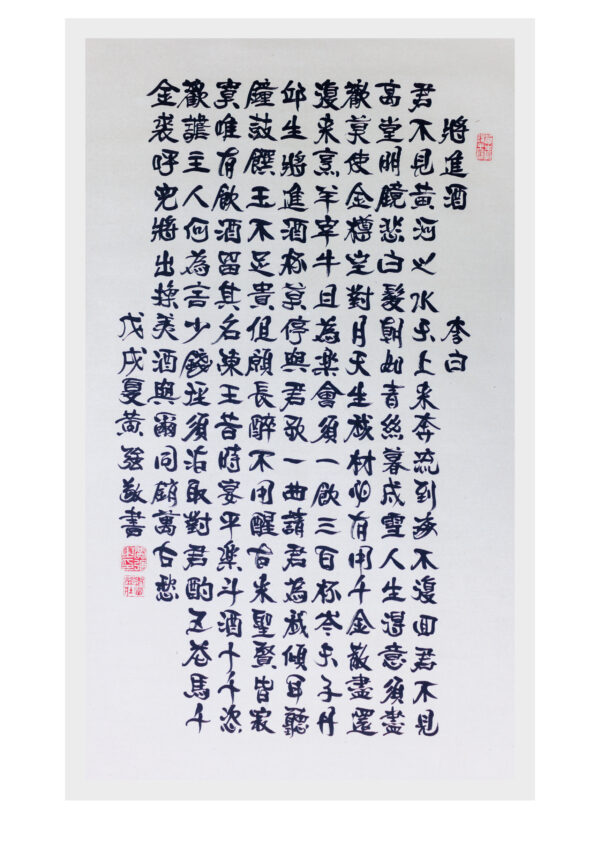 將進酒 李白
君不見黃河之水天上来奔流到海不復回君不見
高堂明鏡悲白髮朝如青絲暮成雪人生得意須盡
歡莫使金樽空對月天生我材必有用千金散盡還
復来烹羊宰牛且為樂會須一飲三百杯岑夫子丹
邱生將進酒杯莫停與君歌一曲請君為我傾耳聽
鐘鼓饌玉不足貴但願長醉不用醒古来聖賢皆寂
寞唯有飲酒留其名陳王昔時宴平樂斗酒十千恣
歡謔主人何為言少錢徑須沽取對君酌五花馬千
金裘呼兒將出換美酒與爾同銷萬古愁
戊戌夏黃強敬書